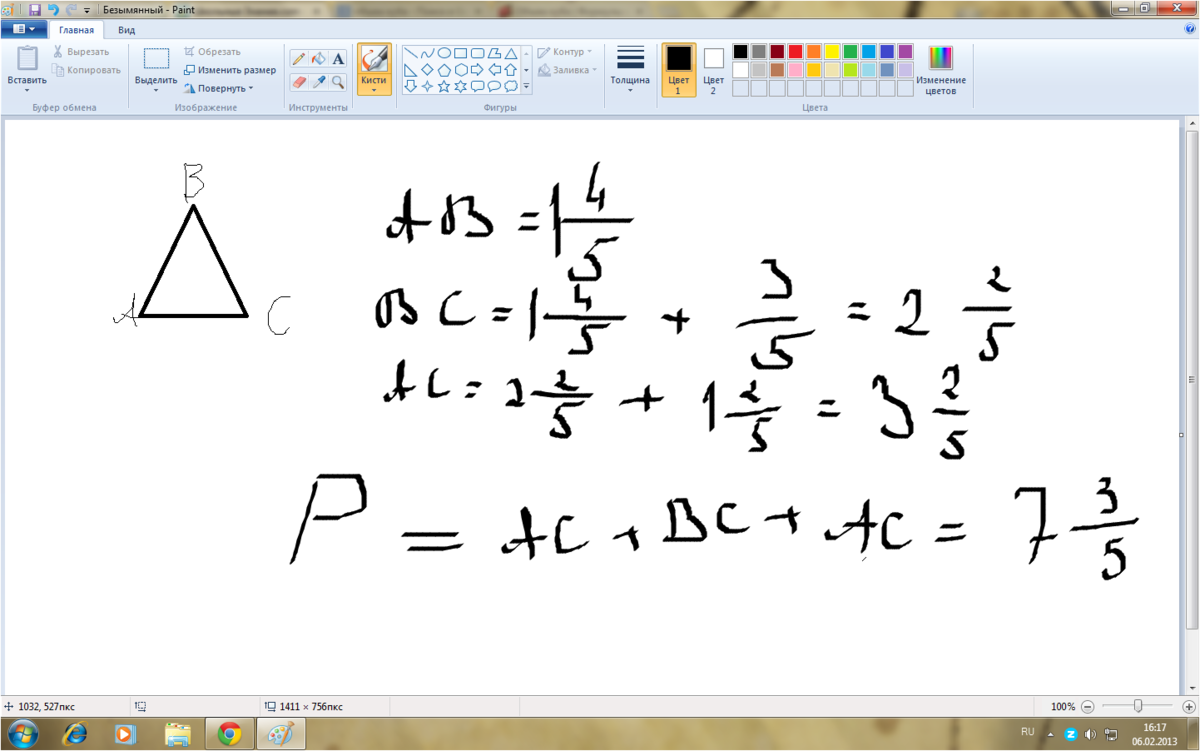 Безымянный - Paint
Главная Вид
Вставить
Вырезать
Копировать
Буфер обмена
Выделить
Обрезать
Изменить размер
Повернуть
Изображение
A
Инструменты
Кисти
Контур
Заливка
Фигуры
Толщина
Цвет 1
Цвет 2
Изменение цветов
Цвета
B
A C
AB = 1 4/5
BC = 1 4/5 + 3/5 = 2 2/5
AC = 2 2/5 + 1 2/5 = 3 2/5
P = AC + BC + AC = 7 3/5
1032, 527пкс
1411 × 756пкс
100%
RU
16:17
06.02.2013